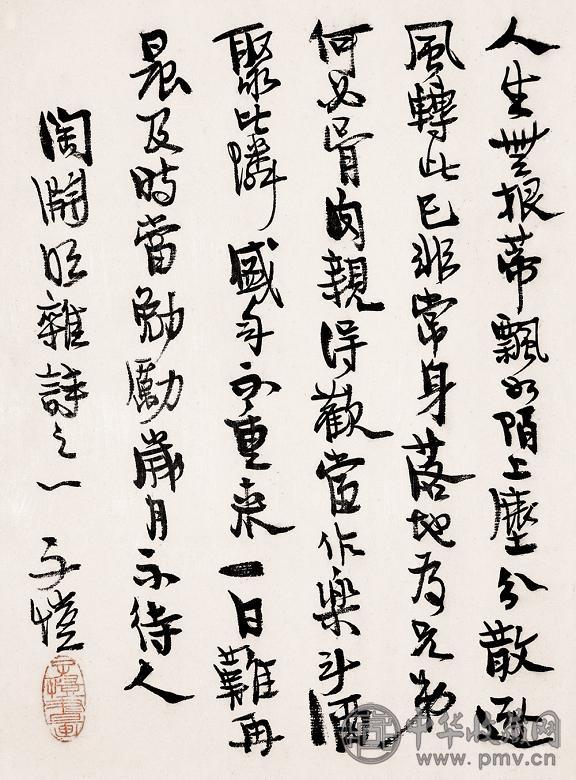 人生無根蒂飄如陌上塵分散逐
風轉此已非常身落地為兄弟
何必骨肉親得歡當作樂斗酒
聚比隣盛年不重来一日難再
晨及時當勉勵歲月不待人
陶淵明雜詩之一 子愷
中华收藏网
www.pmv.cn